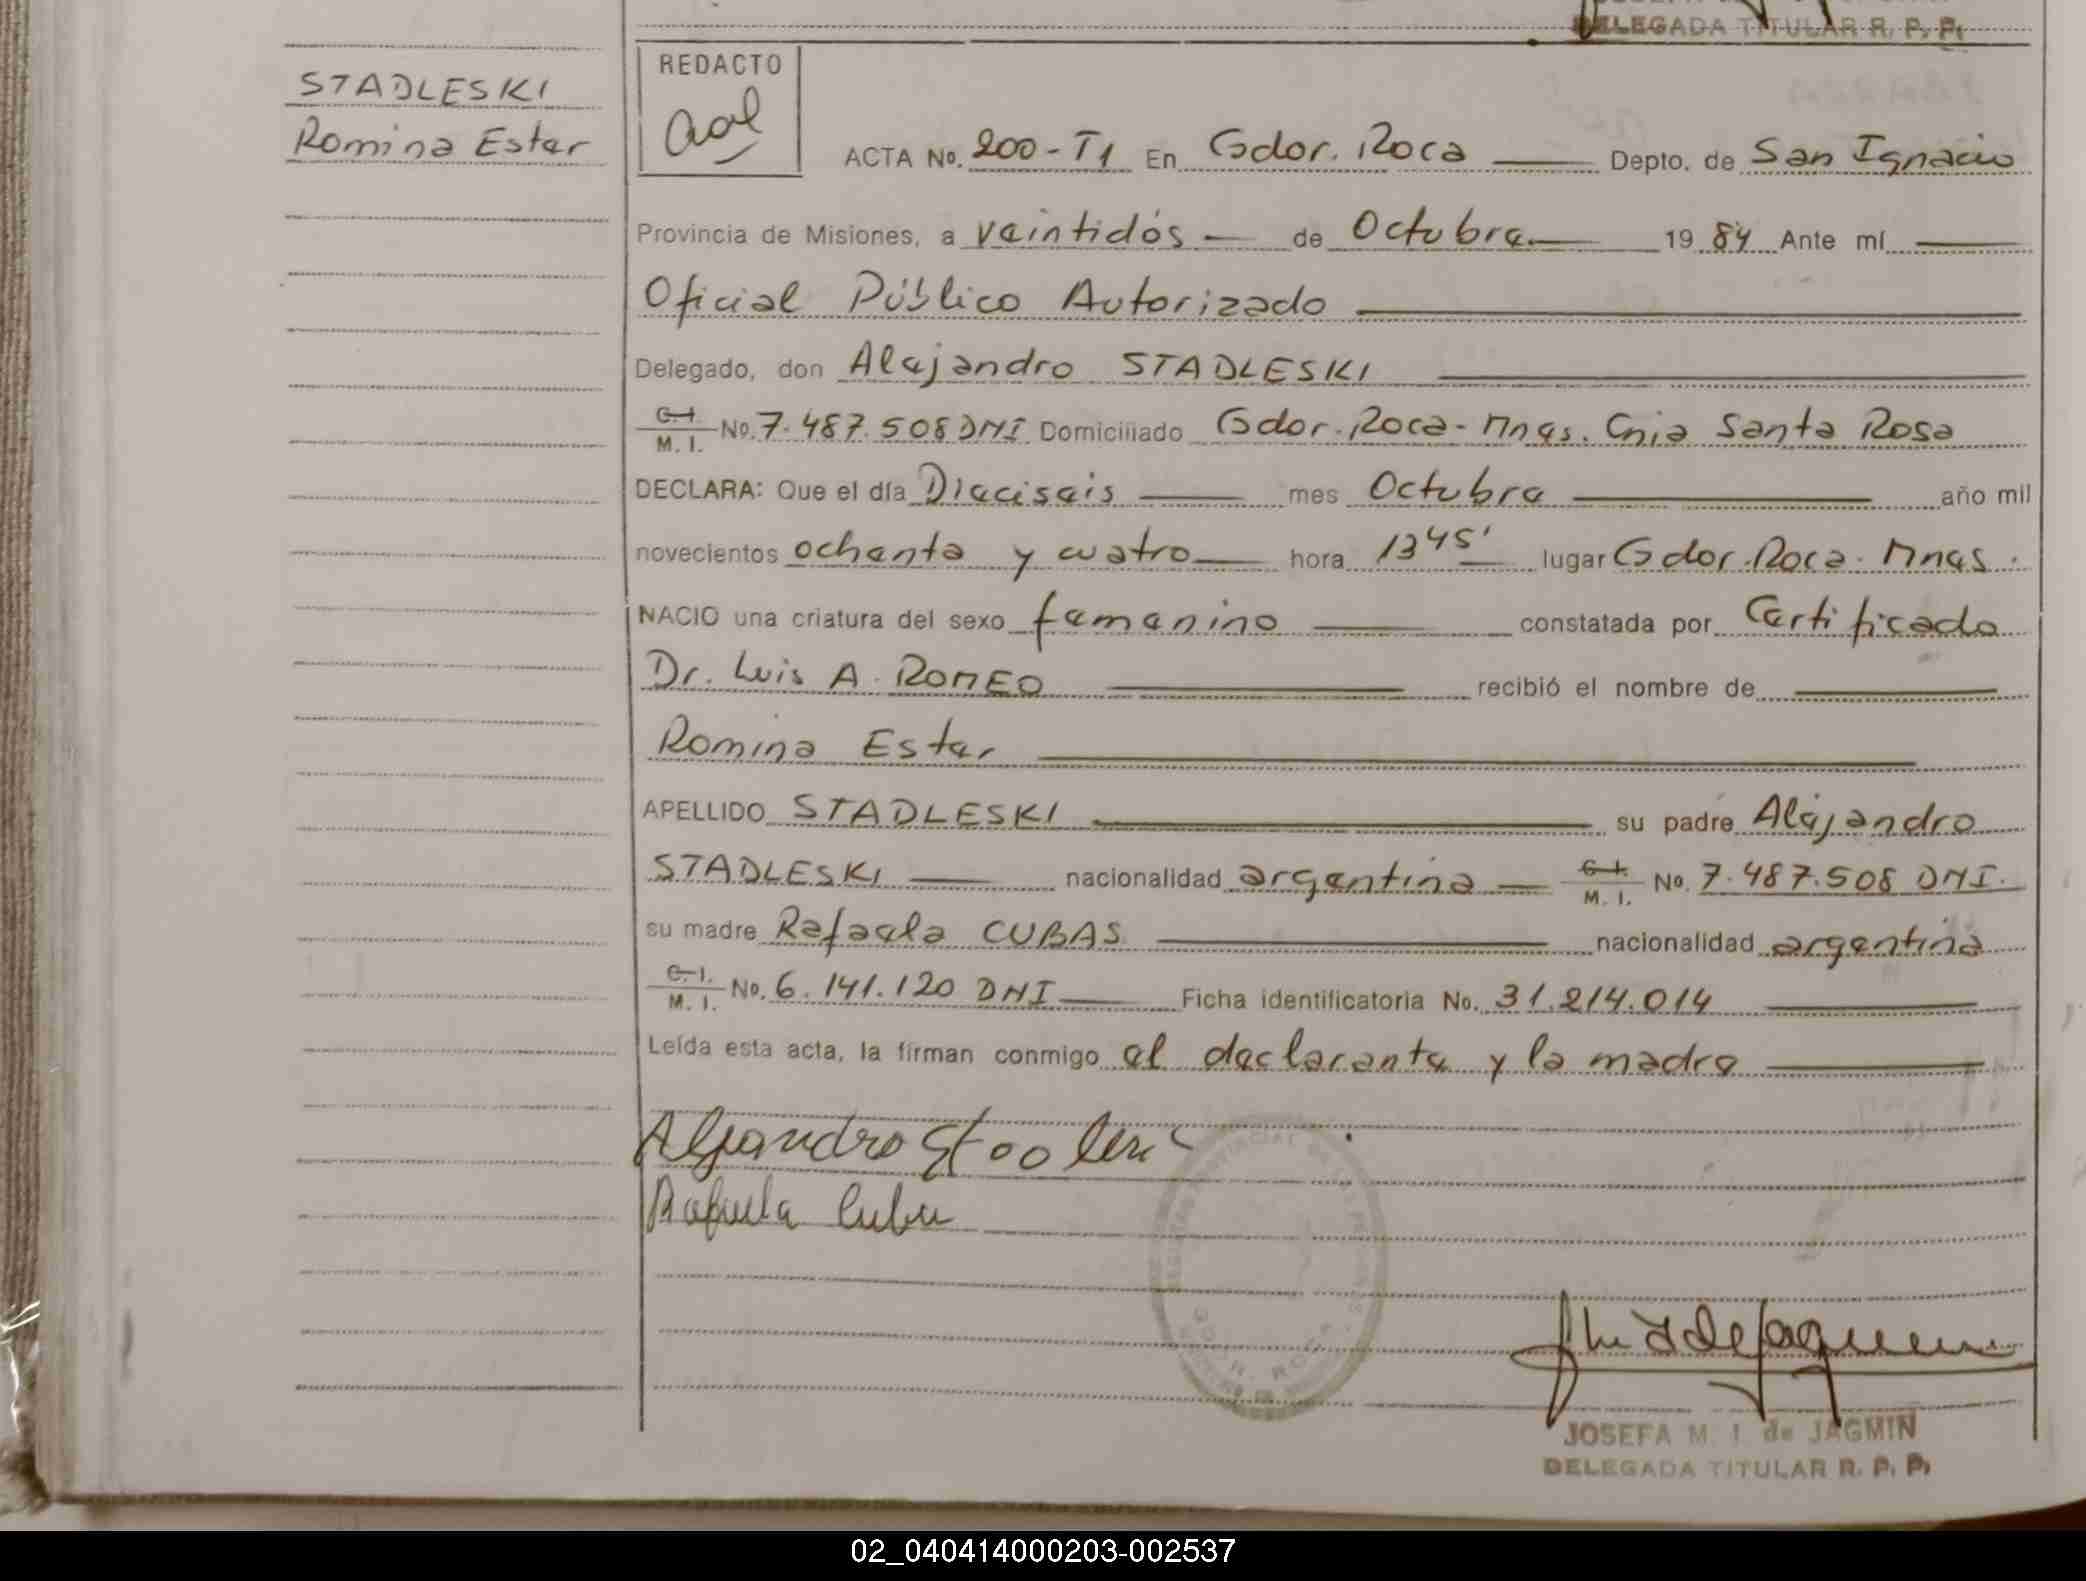 DELEGADA TITULAR R. P. P.
STADLESKI
Romina Ester
REDACTO
ACTA No. 200-T1 En Gdor. Roca Depto. de San Ignacio
Provincia de Misiones, a veintidós de Octubre 1984 Ante mí
Oficial Público Autorizado
Delegado, don Alejandro STADLESKI
C.I. M. I. No. 7.487.508 DNI Domiciliado Gdor. Roca - Mnes. Cnia Santa Rosa
DECLARA: Que el día Dieciseis mes Octubre año mil
novecientos ochenta y cuatro hora 13 45' lugar Gdor. Roca. Mnes.
NACIO una criatura del sexo femenino constatada por Certificado
Dr. Luis A. ROMEO recibió el nombre de
Romina Ester
APELLIDO STADLESKI su padre Alejandro
STADLESKI nacionalidad argentina C.I. M. I. No. 7.487.508 DNI.
su madre Rafaela CUBAS nacionalidad argentina
C.I. M. I. No. 6.141.120 DNI Ficha identificatoria No. 31.214.014
Leída esta acta, la firman conmigo el declarante y la madre
Rafaela
GDOR. ROCA
JOSEFA M. I. de JAGMIN
DELEGADA TITULAR R. P. P.
02_040414000203-002537